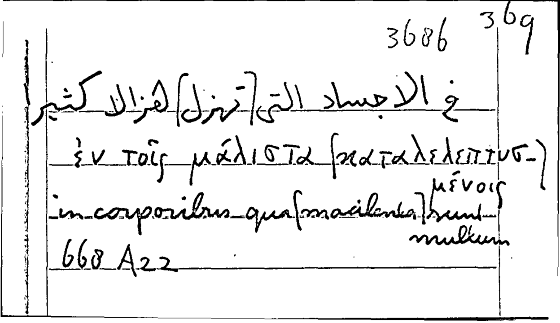 3686 369
في الاجساد التي [تهزل] هزالا كثير
ἐν τοῖς μάλιστα [καταλελεπτυσ-
μένοις]
in corporibus quae [macilenta] sunt
multum
668 A22